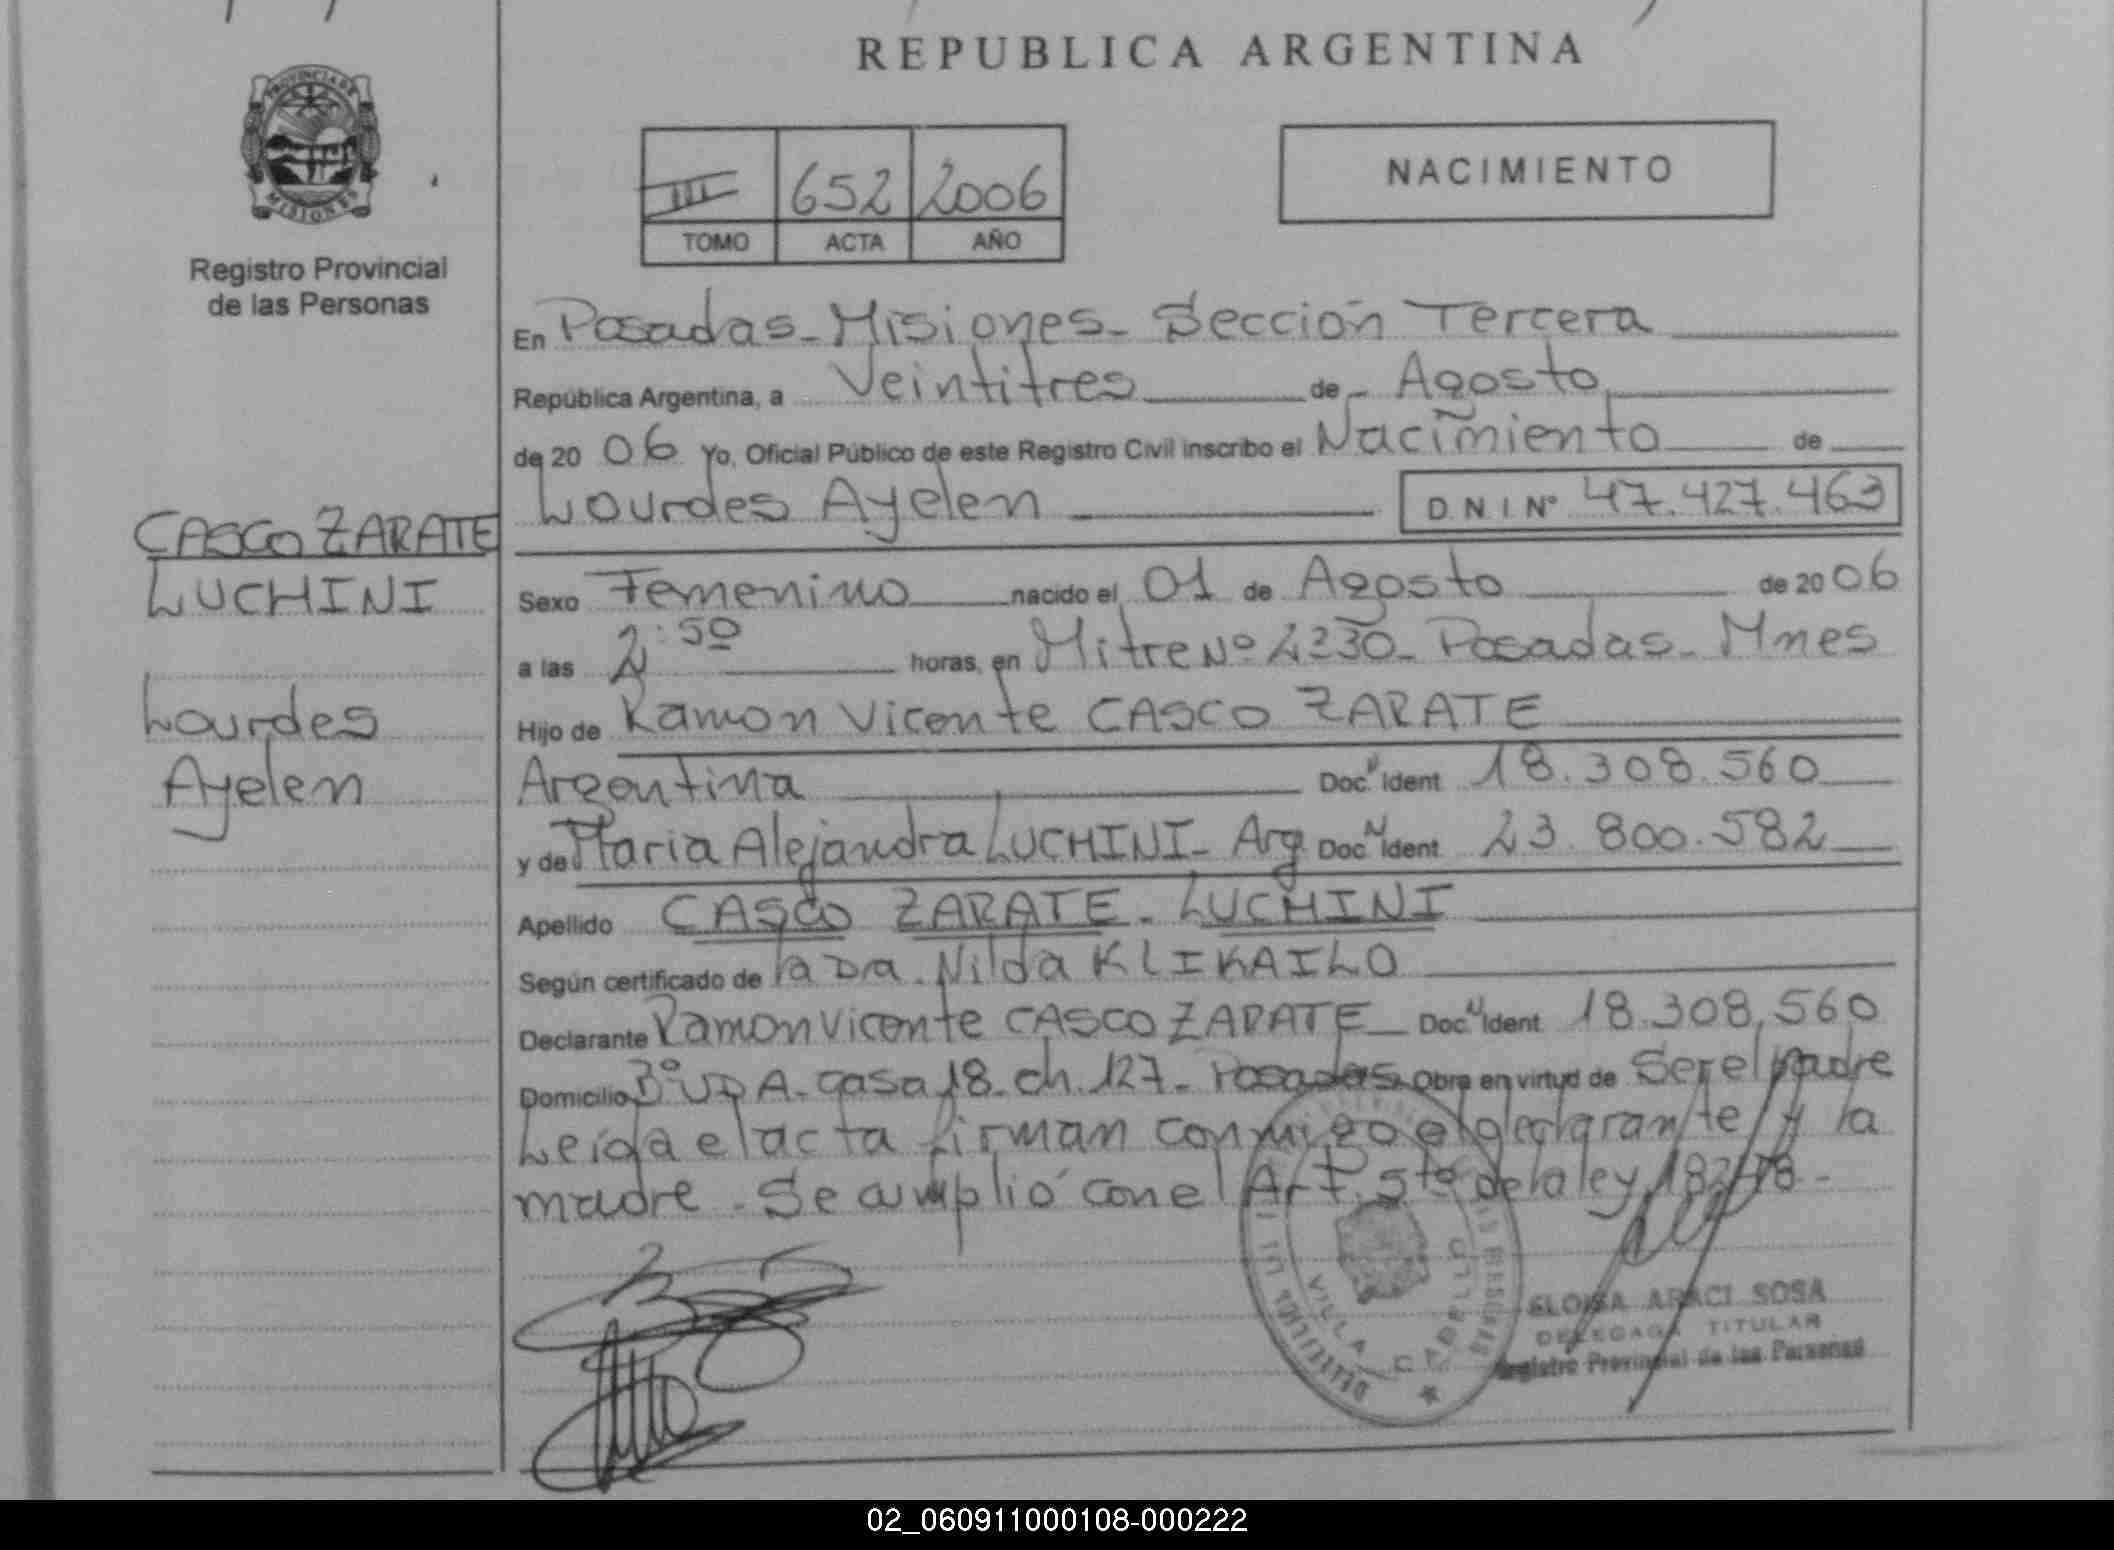 REPUBLICA ARGENTINA
PROVINCIA DE
MISIONES
Registro Provincial
de las Personas
III 652 2006
TOMO ACTA AÑO
NACIMIENTO
En Posadas - Misiones - Sección Tercera
República Argentina, a Veintitres de Agosto
de 20 06 Yo, Oficial Público de este Registro Civil inscribo el Nacimiento de
Lourdes Ayelen D.N.I. Nº 47.427.463
CASCO ZARATE
LUCHINI
Lourdes
Ayelen
Sexo Femenino nacido el 01 de Agosto de 20 06
a las 2:50 horas, en Mitre Nº 2230 - Posadas - Mnes
Hijo de Ramon Vicente CASCO ZARATE
Argentina Doc. N Ident 18.308.560
y de Maria Alejandra LUCHINI - Arg Doc. N Ident 23.800.582
Apellido CASCO ZARATE - LUCHINI
Según certificado de la Dra. Nilda KLIKAILO
Declarante Ramon Vicente CASCO ZARATE Doc. N Ident 18.308.560
Domicilio Bº UDA - casa 18 - ch. 127 - Posadas Obra en virtud de Ser el padre
Leída el acta firman conmigo el declarante y la
madre - Se cumplió con el Art. 5to de la ley 18248 -
VILLA CABELLO
ELOISA ARACI SOSA
DELEGADA TITULAR
Registro Provincial de las Personas
02_060911000108-000222